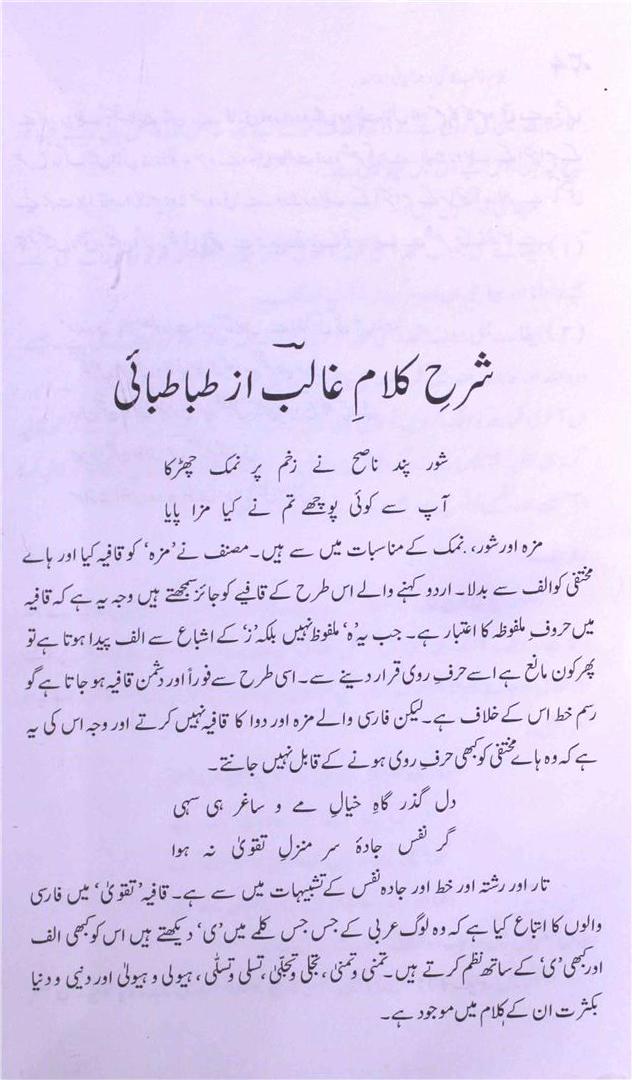 شرحِ کلامِ غالبؔ از طباطبائی
شور پند ناصح نے زخم پر نمک چھڑکا
آپ سے کوئی پوچھے تم نے کیا مزا پایا
مزہ اور شور، نمک کے مناسبات میں سے ہیں۔ مصنف نے ’مزہ‘ کو قافیہ کیا اور ہاے
مختفی کو الف سے بدلا۔ اردو کہنے والے اس طرح کے قافیے کو جائز سمجھتے ہیں وجہ یہ ہے کہ قافیہ
میں حروفِ ملفوظہ کا اعتبار ہے۔ جب یہ ’ہ‘ ملفوظ نہیں بلکہ ’ز‘ کے اشباع سے الف پیدا ہوتا ہے تو
پھر کون مانع ہے اسے حرفِ روی قرار دینے سے۔ اسی طرح سے فوراً اور دشمن قافیہ ہو جاتا ہے گو
رسم خط اس کے خلاف ہے۔ لیکن فارسی والے مزہ اور دوا کا قافیہ نہیں کرتے اور وجہ اس کی یہ
ہے کہ وہ ہاے مختفی کو کبھی حرفِ روی ہونے کے قابل نہیں جانتے۔
دل گذر گاہِ خیالِ مے و ساغر ہی سہی
گر نفس جادۂ سر منزلِ تقویٰ نہ ہوا
تار اور رشتہ اور خط اور جادہ نفس کے تشبیہات میں سے ہے۔ قافیہ ’تقویٰ‘ میں فارسی
والوں کا اتباع کیا ہے کہ وہ لوگ عربی کے جس جس کلمے میں ’ی‘ دیکھتے ہیں اس کو کبھی الف
اور کبھی ’ی‘ کے ساتھ نظم کرتے ہیں۔ تمنی و تمنیٰ، تجلی و تجلّیٰ، تسلی و تسلّی، ہیولی و ہیولیٰ اور دنیی و دنیا
بکثرت ان کے کلام میں موجود ہے۔